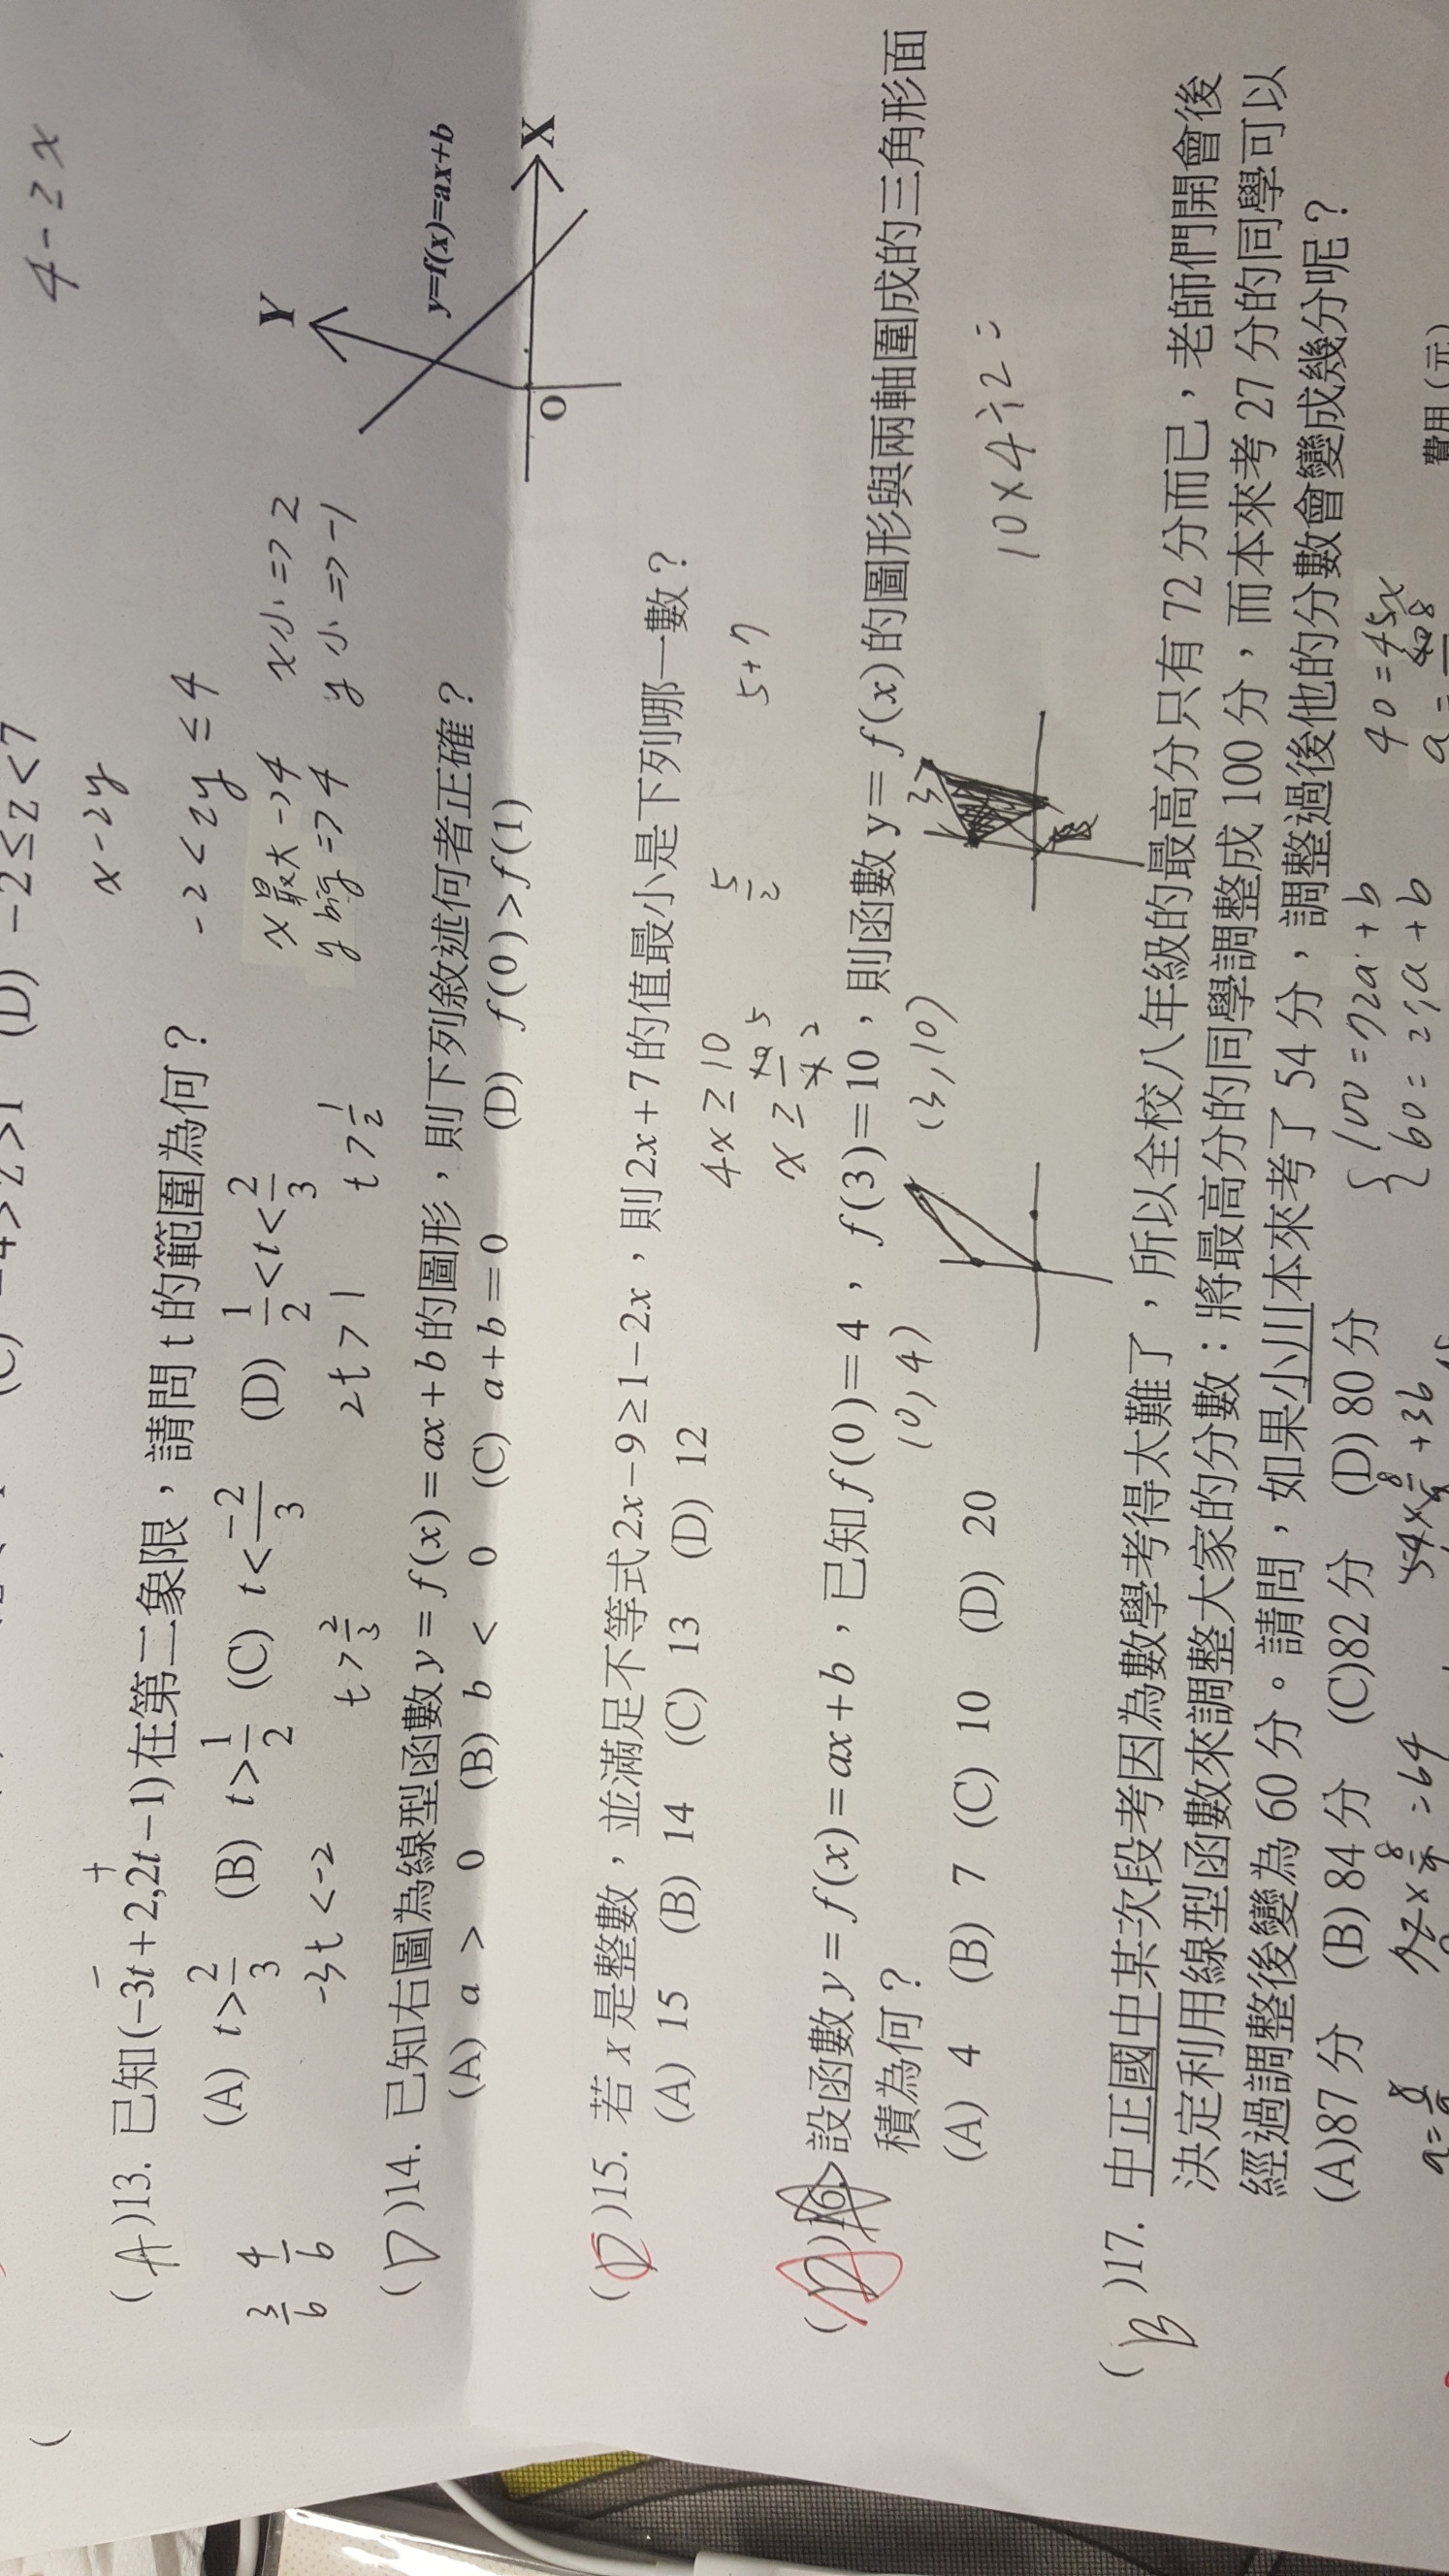 4-2x
(D) -2≤z<7
x-2y
-2<2y≤4
(A)13. 已知(-3t+2,2t-1)在第二象限，請問t的範圍為何？
- +
(A) t>2/3 (B) t>1/2 (C) t<-2/3 (D) 1/2<t<2/3
x最大→4 x小=>2
y big=>4 y小=>-1
-3t<-2 t>2/3 2t>1 t>1/2
3/6 4/6
(D)14. 已知右圖為線型函數y=f(x)=ax+b的圖形，則下列敘述何者正確？
(A) a > 0 (B) b < 0 (C) a+b=0 (D) f(0)>f(1)
Y
y=f(x)=ax+b
O
X
(D)15. 若x是整數，並滿足不等式2x-9≥1-2x，則2x+7的值最小是下列哪一數？
(A) 15 (B) 14 (C) 13 (D) 12
4x≥10 5/2 5+7
(D)16. 設函數y=f(x)=ax+b，已知f(0)=4，f(3)=10，則函數y=f(x)的圖形與兩軸圍成的三角形面
積為何？
(0,4) (3,10)
(A) 4 (B) 7 (C) 10 (D) 20
3
10×4÷2=
(B)17. 中正國中某次段考因為數學考得太難了，所以全校八年級的最高分只有72分而已，老師們開會後
決定利用線型函數來調整大家的分數：將最高分的同學調整成100分，而本來考27分的同學可以
經過調整後變為60分。請問，如果小川本來考了54分，調整過後他的分數會變成幾分呢？
(A)87分 (B)84分 (C)82分 (D)80分
100=72a+b
60=27a+b
40=45x
費用(元)